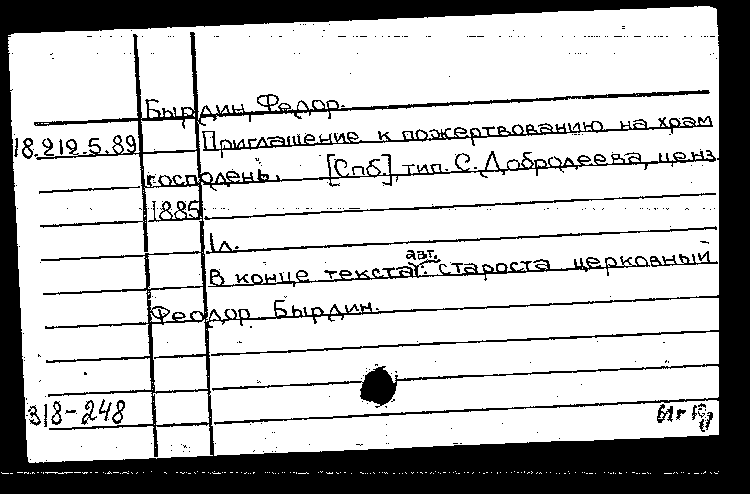 Бырдин, Федор.
18.212.5.89 Приглашение к пожертвованию на храм
господень. [Спб], тип. С. Добродеева, ценз.
1885.
1л.
В конце текста авт.: староста церковный
Феодор Бырдин.
318-248